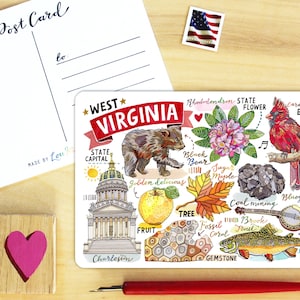 Post Card
to
MADE BY
WEST
VIRGINIA
STATE
CAPITAL
Charleston
Black
Bear
Rhododendron
STATE
FLOWER
Golden delicious
FRUIT
Sugar
Maple
TREE
Coal mining
Fossil
Coral
GEMSTONE
Brook
Trout